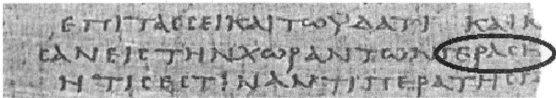 ΕΠΙΤΑϹϹΕΙΚΑΙΤΩΥΔΑΤΙ ΚΑΙΚ
ϹΑΝΕΙϹΤΗΝΧΩΡΑΝΤΩΝΓΕΡΑϹΗ
ΗΤΙϹΕϹΤΙΝΑΝΤΙΠΕΡΑΤΗϹ